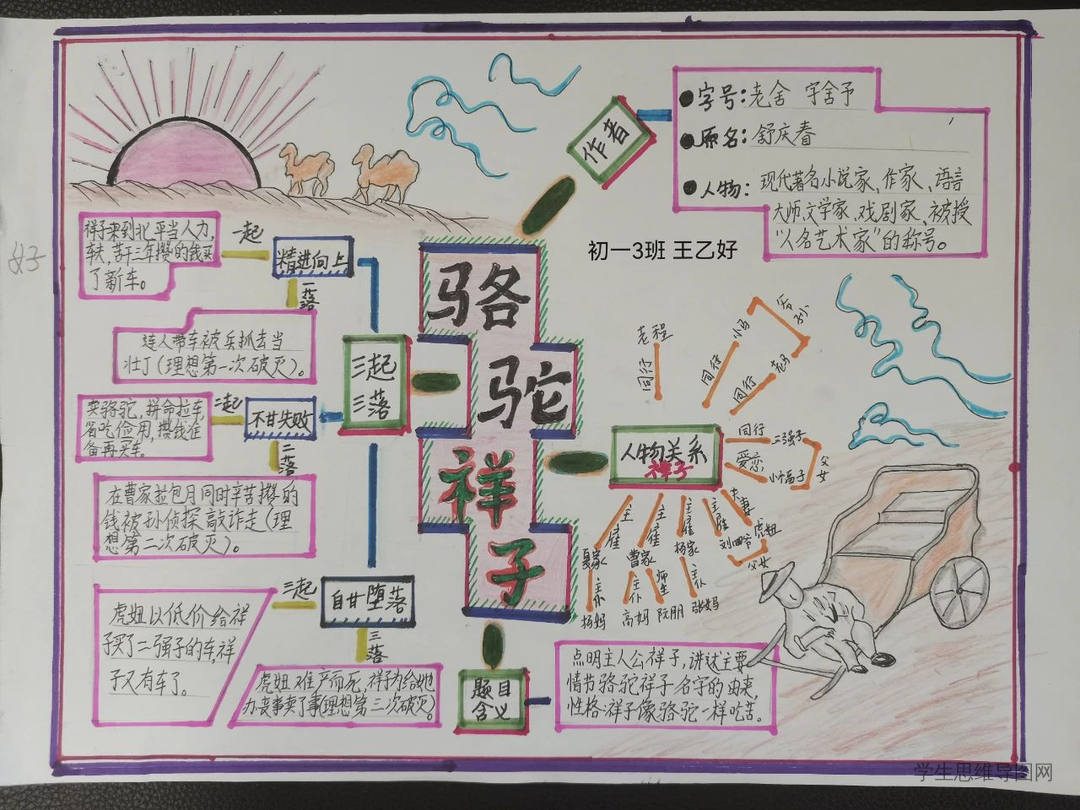 骆
驼
祥
子
初一3班 王乙好
作者
字号：老舍 字舍予
原名：舒庆春
人物：现代著名小说家、作家、语言
大师、文学家、戏剧家、被授
“人名艺术家”的称号。
三起
三落
精进向上
一起
祥子来到北平当人力
车夫，苦干三年攒的钱买
了新车。
一落
连人带车被兵抓去当
壮丁（理想第一次破灭）。
不甘失败
二起
卖骆驼，拼命拉车，
省吃俭用，攒钱准
备再买车。
二落
在曹家拉包月同时辛苦攒的
钱被孙侦探敲诈走（理
想第二次破灭）。
自甘堕落
三起
虎妞以低价给祥
子买了二强子的车，祥
子又有车了。
三落
虎妞难产而死，祥子为给她
办丧事卖了事（理想第三次破灭）。
题目
含义
点明主人公祥子，讲述主要
情节骆驼祥子名字的由来，
性格：祥子像骆驼一样吃苦。
人物关系
祥子
同行
老程
同行
小马
爷孙
同行
老马
同行
二强子
爱恋
小福子
父女
夫妻
虎妞
主雇
刘四爷
父女
主雇
杨家
主仆
张妈
主雇
曹家
主仆
高妈
师生
阮明
主雇
夏家
主仆
杨妈
好
学生思维导图网